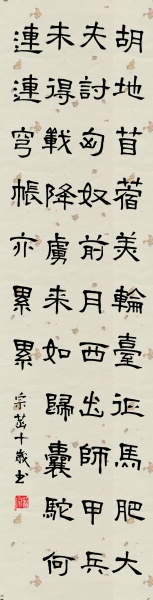 胡地苜蓿美輪臺征馬肥大
夫討匈奴前月西出師甲兵
未得戰降虜來如歸囊駝何
連連穹帳亦累累
宗十歲書